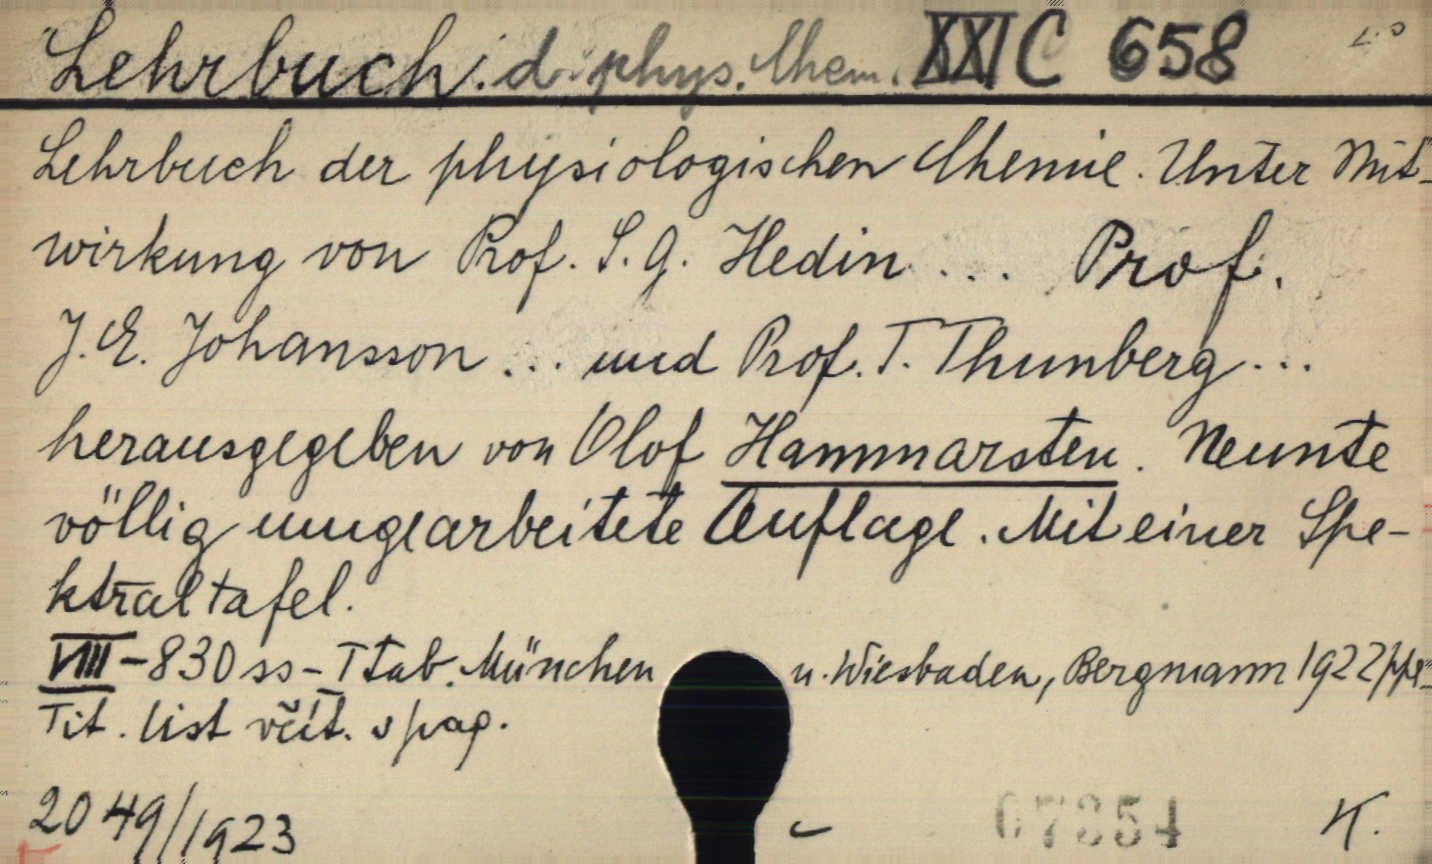 Lehrbuch. d. phys. Chem. XXI C 658
Lehrbuch der physiologischen Chemie. Unter Mit-
wirkung von Prof. S. G. Hedin ... Prof.
J. E. Johansson ... und Prof. T. Thunberg ...
herausgegeben von Olof Hammarsten. Neunte
völlig umgearbeitete Auflage. Mit einer Spe-
ktraltafel.
VIII-830 ss - I tab. München u. Wiesbaden, Bergmann 1922
Tit. list včít. v pag.
2049/1923
07354 K.